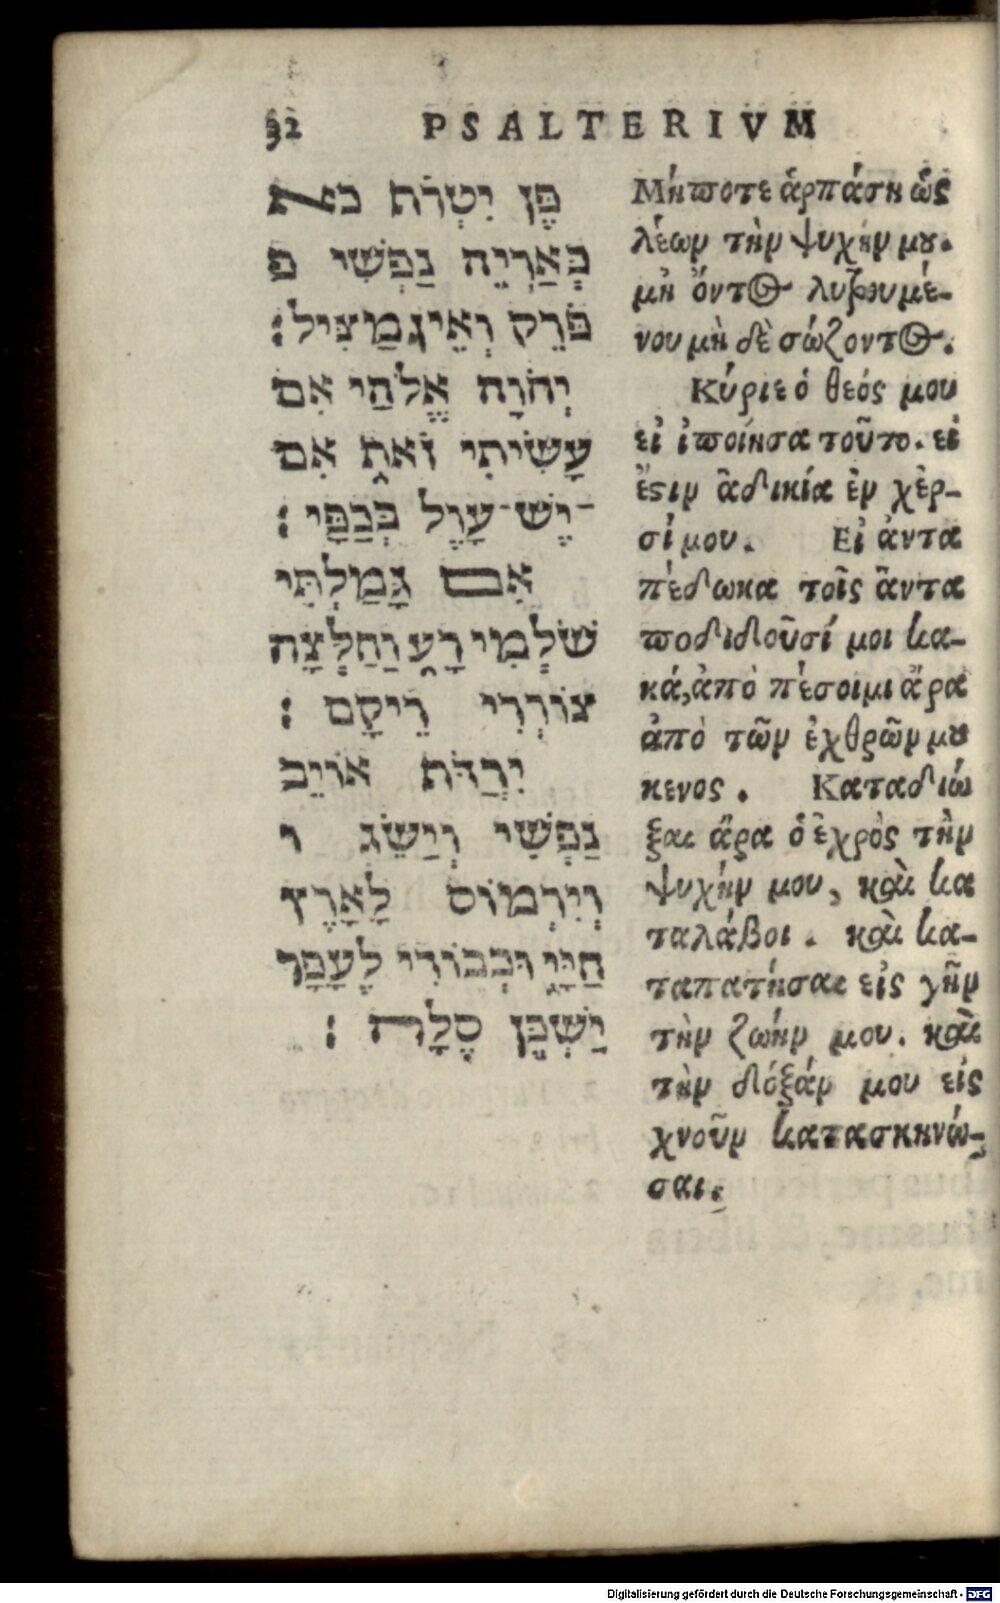 32 PSALTERIVM
פֶּן יִטְרֹת כא
כְּאַרְיֵה נַפְשִׁי פ
פֹּרֵק וְאֵין מַצִּיל׃
יְהֹוָה אֱלֹהַי אִם
עָשִׂיתִי זֹאת אִם
־יֶשׁ־עָוֶל בְּכַפָּי׃
אִם גָּמַלְתִּי
שׁוֹלְמִי רָע וַחַלְּצָה
צוֹרְרִי רֵיקָם׃
יִרְדֹּת אוֹיֵב
נַפְשִׁי וְיַשֵּׂג ו
וְיִרְמוֹס לָאָרֶץ
חַיָּי וּכְבוֹדִי לֶעָפָר
יַשְׁכֵּן סֶלָה׃
Μήποτε ἁρπάση ὡς
λέων τὴν ψυχήν μου.
μὴ ὄντος λυτρουμέ-
νου μὴ δὲ σώζοντος.
Κύριε ὁ θεός μου
εἰ ἐποίησα τοῦτο. εἰ
ἔστιν ἀδικία ἐν χὲρ-
σί μου. Εἰ ἀντα
πέδωκα τοῖς ἀντα
ποδιδοῦσί μοι κα-
κά, ἀπὸ πέσοιμι ἄρα
ἀπὸ τῶν ἐχθρῶν μου
κενος. Καταδιώ
ξαι ἄρα ὁ ἐχρὸς τὴν
ψυχήν μου, καὶ κα
ταλάβοι. καὶ κα-
ταπατήσαι εἰς γῆν
τὴν ζωήν μου. καὶ
τὴν δόξάν μου εἰς
χνοῦν κατασκηνώ-
σαι.
Digitalisierung gefördert durch die Deutsche Forschungsgemeinschaft - DFG